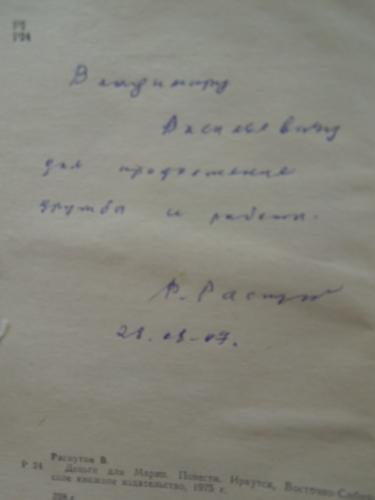 Р2
Р24
Владимиру
Васильевичу
для продолжения
дружбы и работы.
В. Распутин
Распутин В.
Р 24 Деньги для Марии. Повести. Иркутск, Восточно-Сибир
ское книжное издательство, 1975 г.